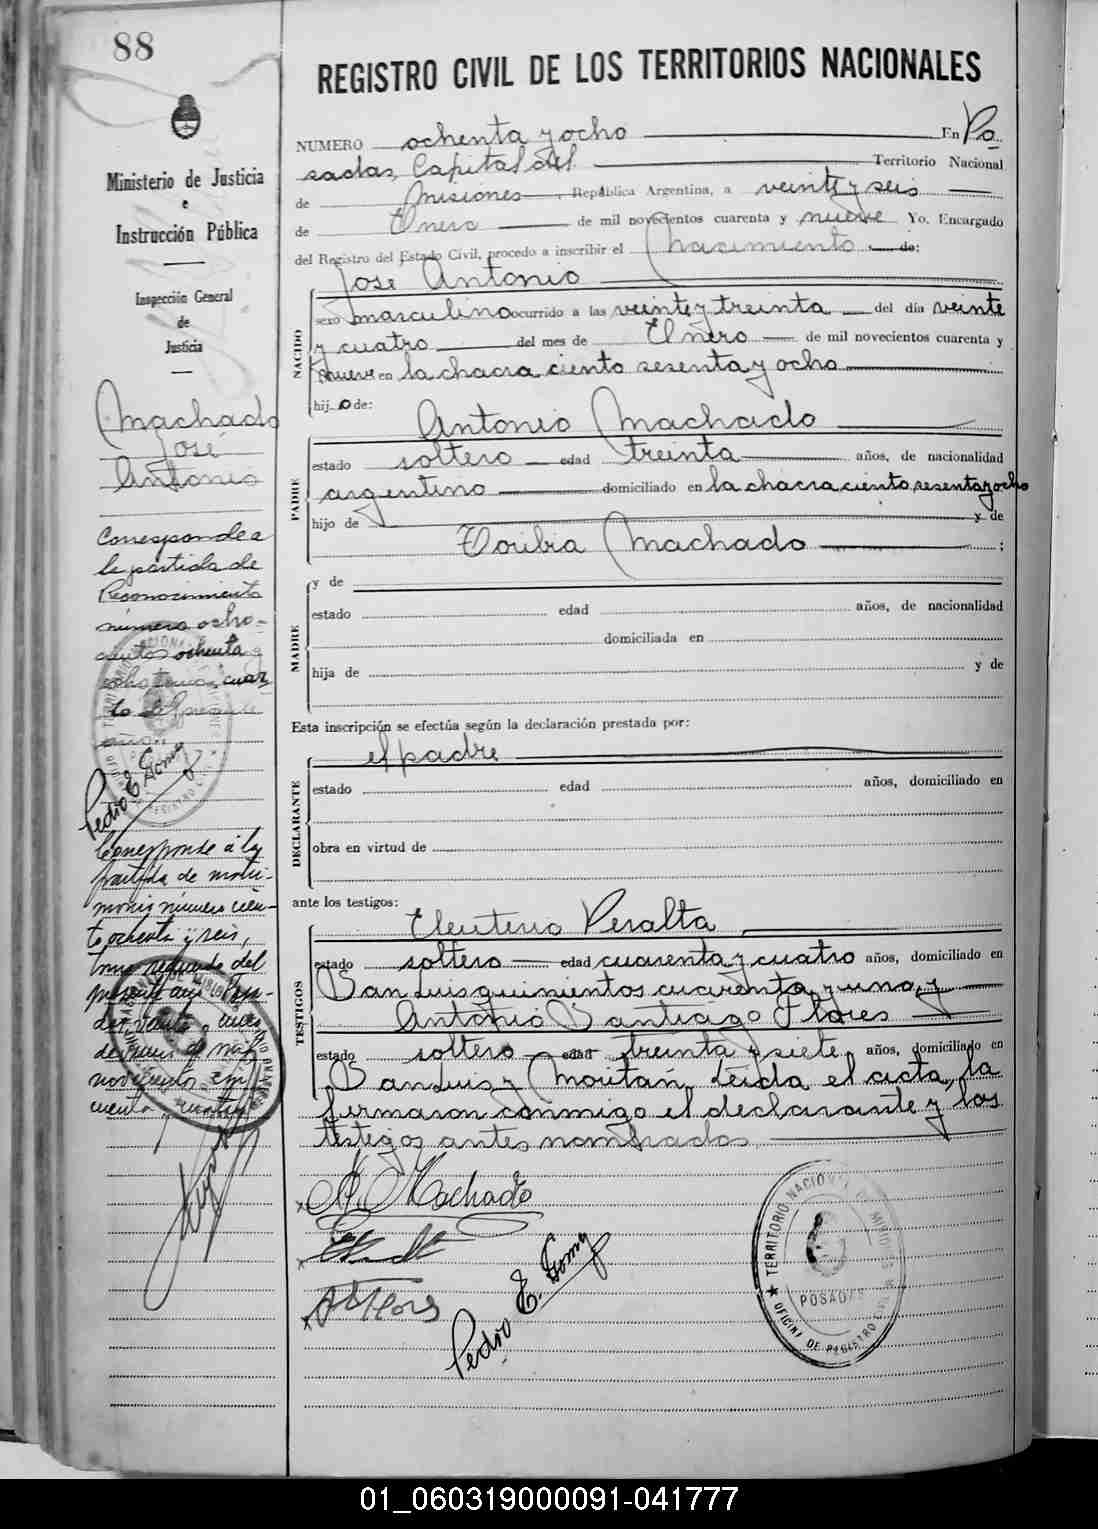 88
Ministerio de Justicia
e
Instrucción Pública
Inspección General
de
Justicia
Machado
José
Antonio
Corresponde a
la partida de
Reconocimiento
número ocho-
cientos ochenta y
ocho tomo cuar
to del presente
año.
Pedro E. Gomy
Corresponde á la
partida de matri-
monio número cien-
to ochenta y seis,
tomo segundo del
presente año. Posa-
das,
de mil
novecientos cin
cuenta y
REGISTRO CIVIL DE LOS TERRITORIOS NACIONALES
NUMERO ochenta y ocho En Po
sadas, Capital del Territorio Nacional
de Misiones, República Argentina, a veinte y seis
de Enero de mil novecientos cuarenta y nueve Yo, Encargado
del Registro del Estado Civil, procedo a inscribir el nacimiento de:
José Antonio
NACIDO
sexo masculino ocurrido a las veinte y treinta del día veinte
y cuatro del mes de Enero de mil novecientos cuarenta y
nueve en la chacra ciento sesenta y ocho
hijo de:
Antonio Machado
PADRE
estado soltero edad treinta años, de nacionalidad
argentino domiciliado en la chacra ciento sesenta y ocho
hijo de y de
Toribia Machado ;
MADRE
y de
estado edad años, de nacionalidad
domiciliada en
hija de y de
Esta inscripción se efectúa según la declaración prestada por:
el padre
DECLARANTE
estado edad años, domiciliado en
obra en virtud de
ante los testigos:
Eleuterio Peralta
TESTIGOS
estado soltero edad cuarenta y cuatro años, domiciliado en
San Luis quinientos cuarenta y uno, y
Antonio Santiago Flores
estado soltero edad treinta y siete años, domiciliado en
San Luis y Moritán, Leida el acta, la
firmaron conmigo el declarante y los
testigos antes nombrados.
A. Machado
A S Flores
Pedro E. Gomy
TERRITORIO NACIONAL DE MISIONES
POSADAS
OFICINA DE REGISTRO CIVIL
01_060319000091-041777